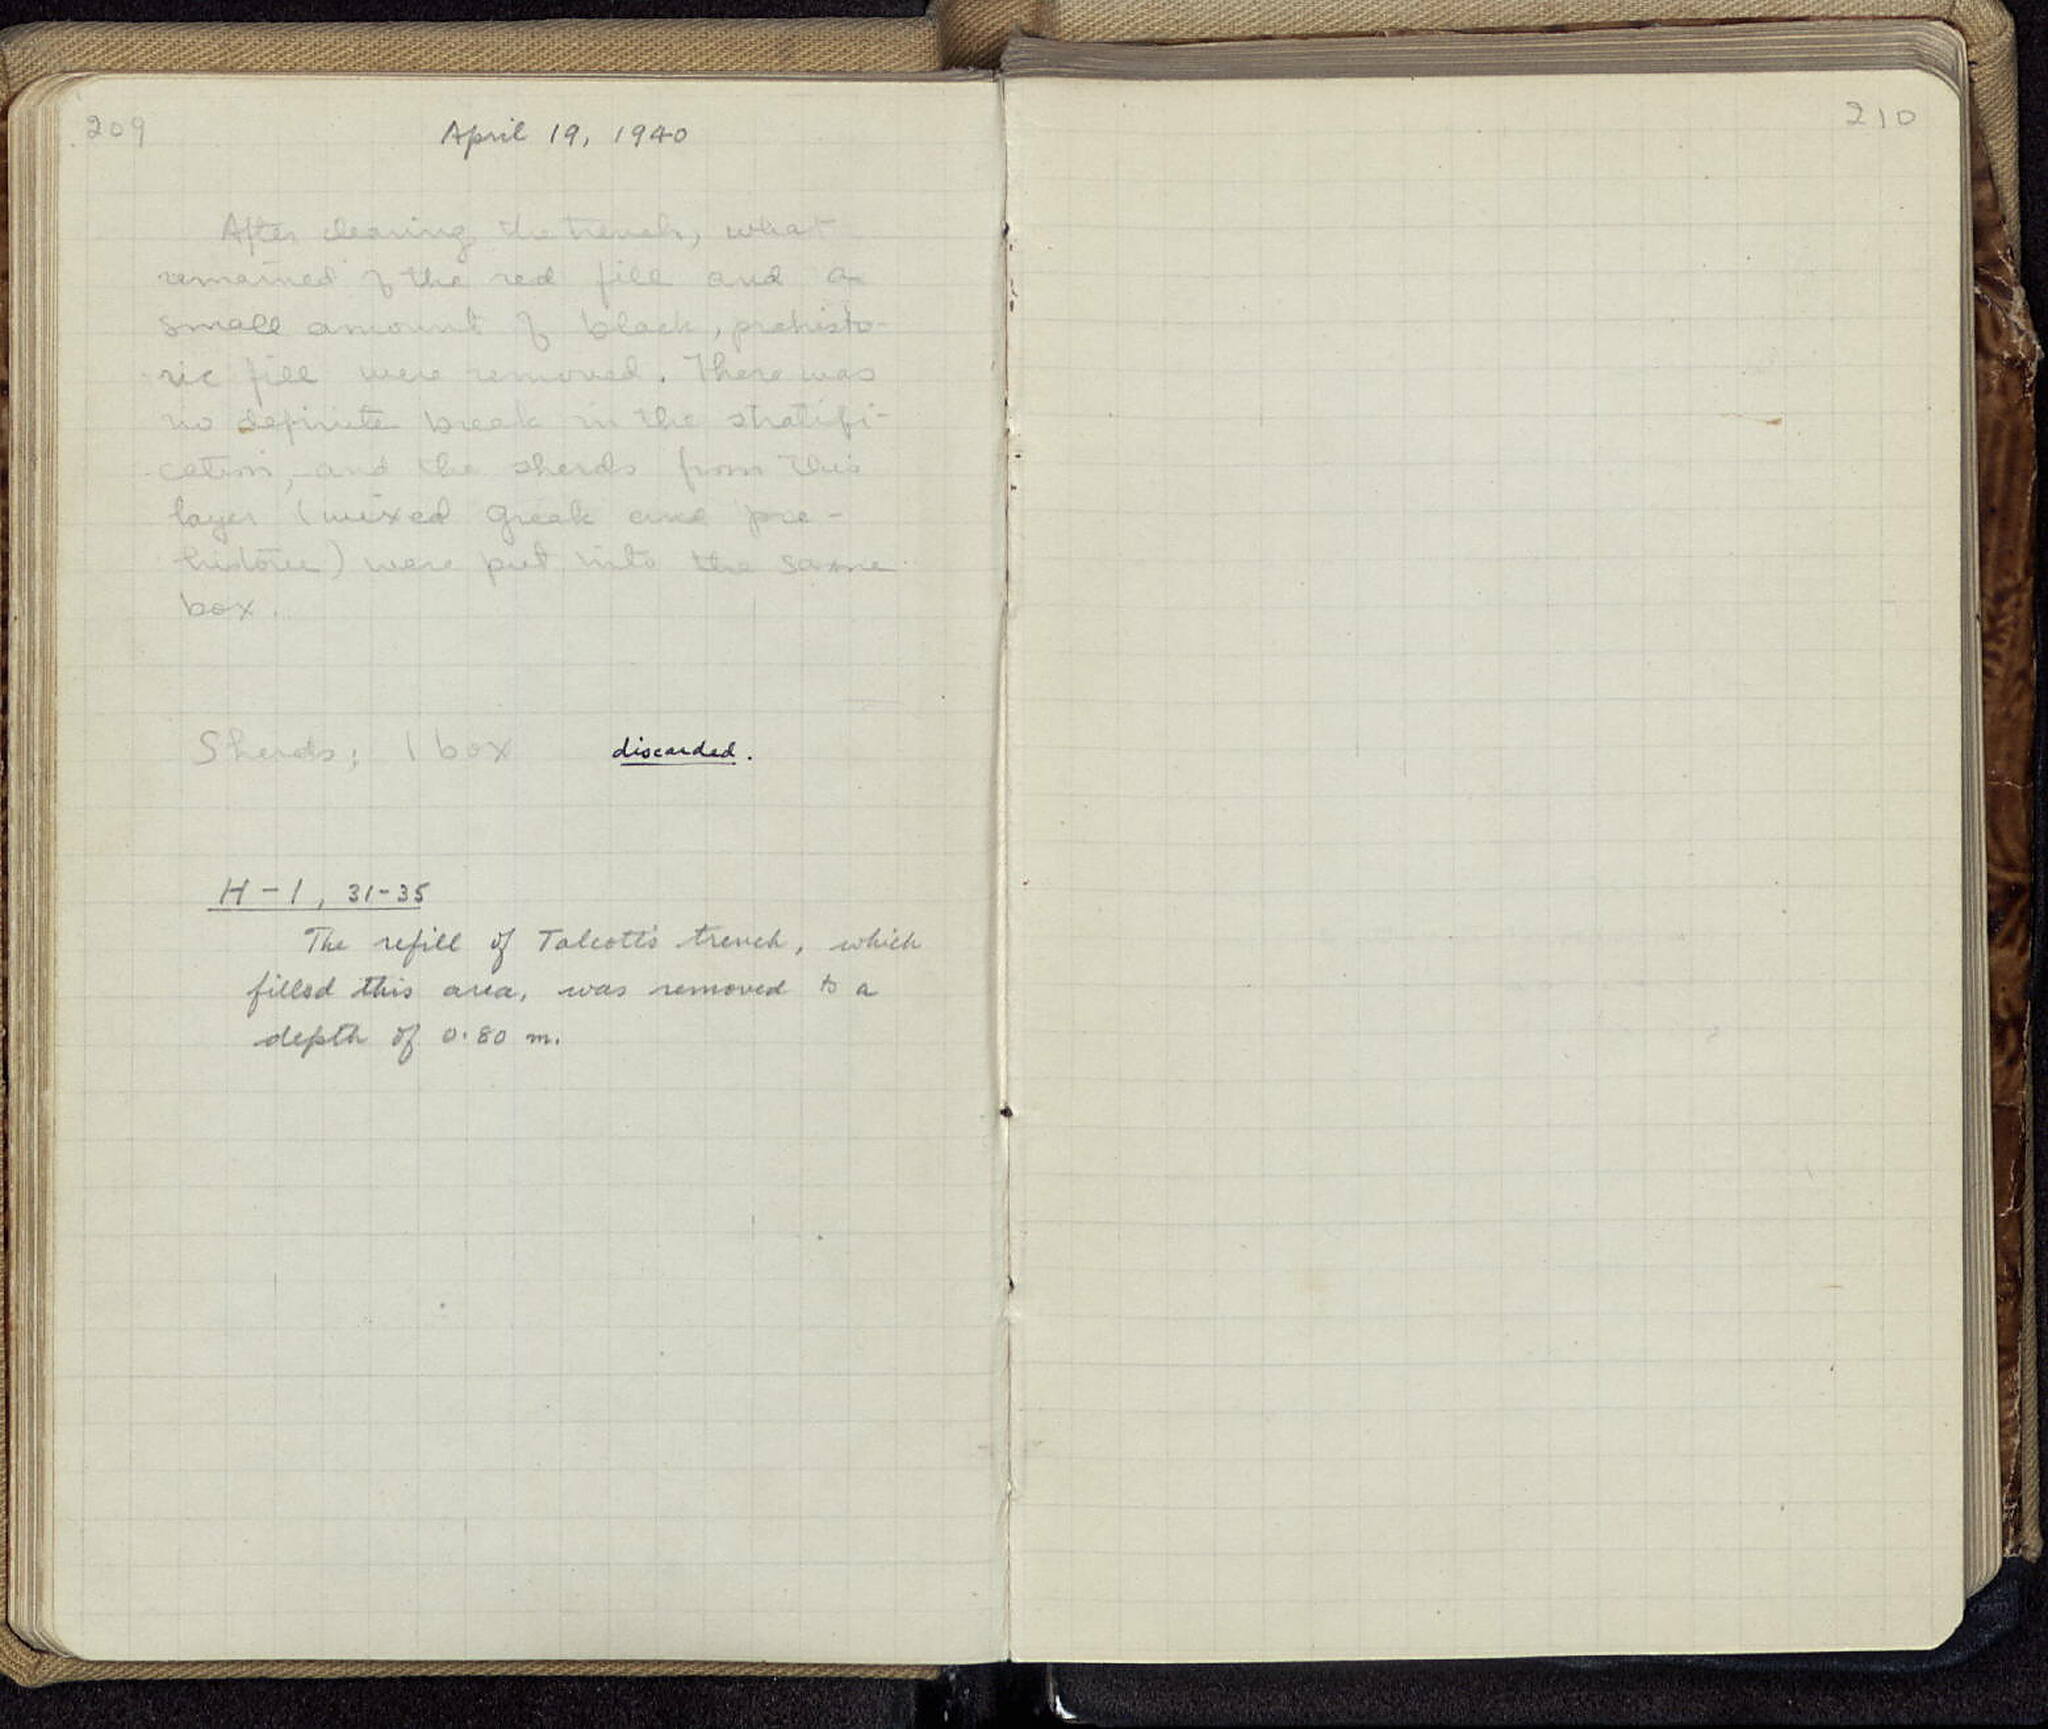 209
April 19, 1940
After cleaning the trench, what
remained of the red fill and a
small amount of black, prehisto-
ric fill were removed. There was
no definite break in the stratifi-
cation, and the sherds from this
layer (mixed Greek and pre-
historic) were put into the same
box.
Sherds: 1 box discarded.
H-1, 31-35
The refill of Talcott's trench, which
filled this area, was removed to a
depth of 0.80 m.
210